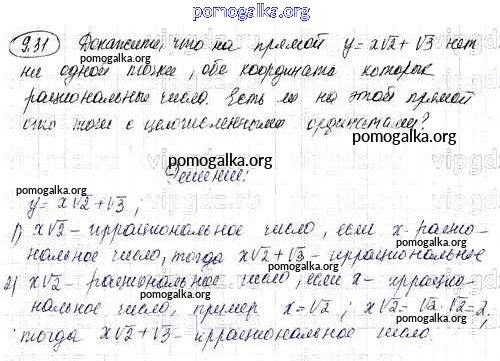 pomogalka.org
9.31 Докажите, что на прямой y = x√2 + √3 нет
ни одной точки, обе координата которых
рациональные число. Есть ли на этой прямой
хотя точки с целочисленными ординатами?
pomogalka.org
Решение:
pomogalka.org
y = x√2 + √3;
1) x√2 – иррациональное число, если x – рацио-
нальное число, тогда x√2 + √3 – иррациональное
2) x√2 – рациональное число, если x – иррацио-
нальное число, пример x = √2; x√2 = √2·√2 = 2,
тогда x√2 + √3 – иррациональное число.
pomogalka.org